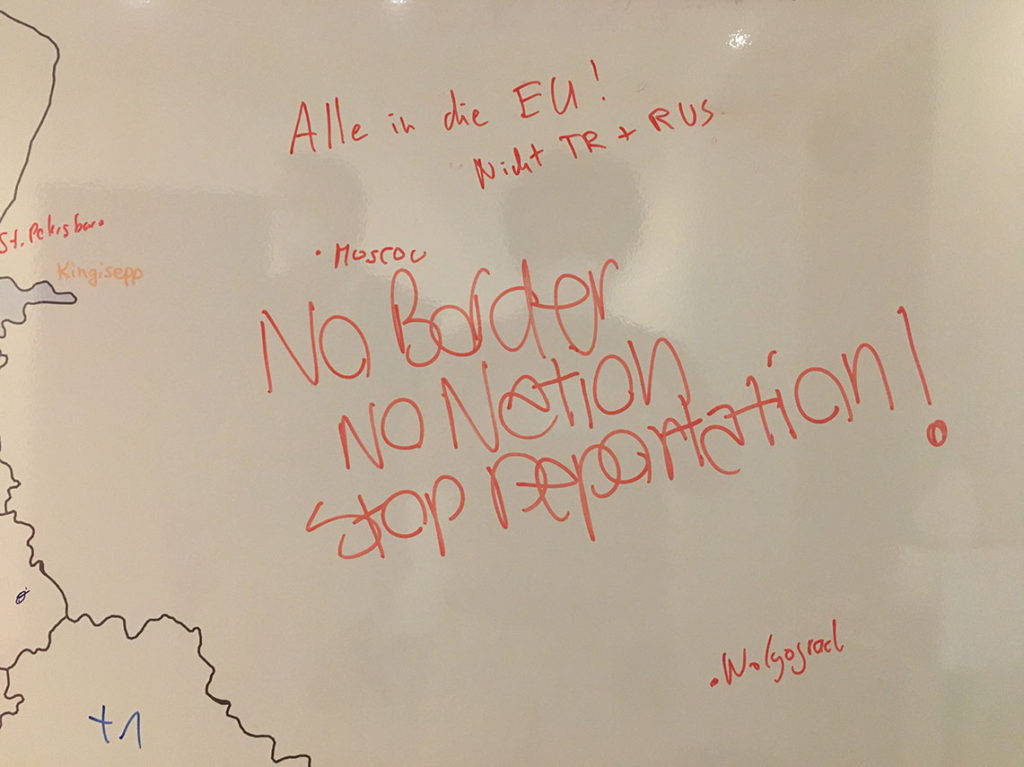 Alle in die EU!
Nicht TR + RUS
St. Petersburg
Kingisepp
Moscow
No Border
No Nation
Stop Deportation!
Wolgograd
+1